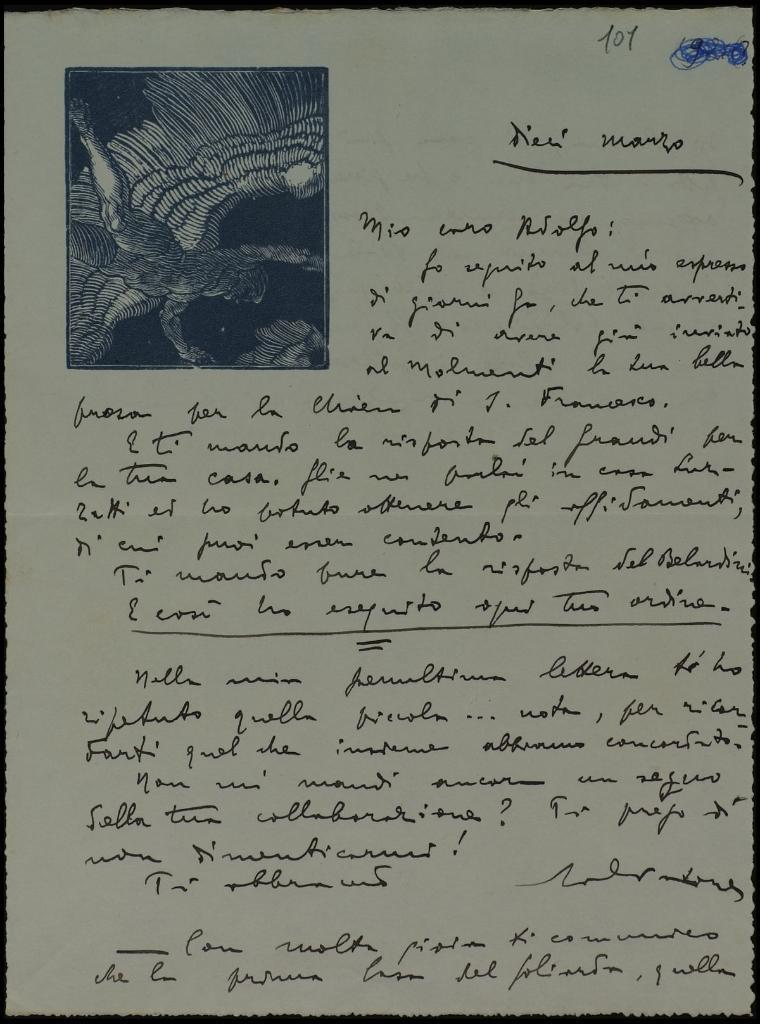 101
dieci marzo
Mio caro Adolfo:
fo seguito al mio espresso
di giorni fa, che ti avverti-
va di avere già inviato
al Molmenti la tua bella
prosa per la Chiesa di S. Francesco.
E ti mando la risposta del Grandi per
la tua casa. Glie ne parlai in casa Luz-
zatti ed ho potuto ottenere gli affidamenti,
di cui puoi esser contento.
Ti mando pure la risposta del Belardini.
E così ho eseguito ogni tuo ordine.
Nella mia penultima lettera ti ho
ripetuto quella piccola ... nota, per ricor-
darti quel che insieme abbiamo concordato.
Non mi mandi ancora un segno
della tua collaborazione? Ti prego di
non dimenticarmi!
Ti abbraccio
Salvatore
— Con molta gioia ti comunico
che la prima Casa del Goliardo, quella